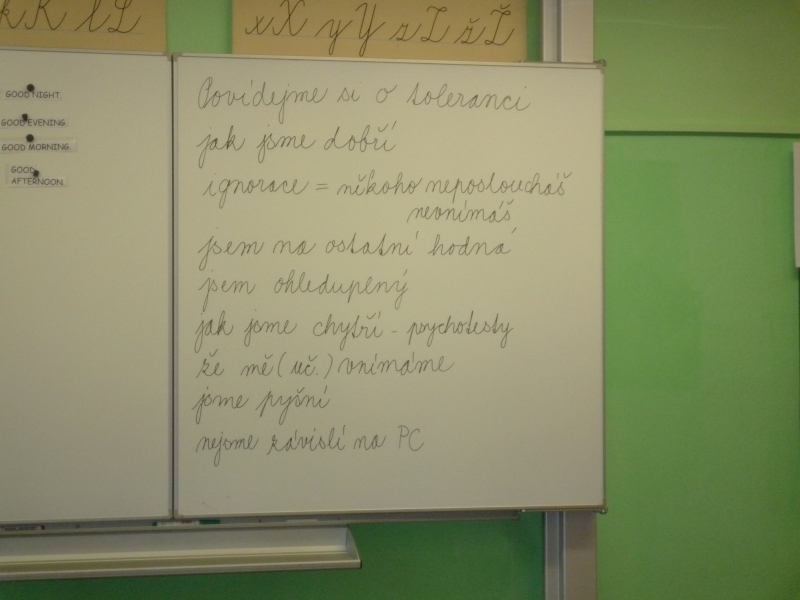 k K l L
x X y Y z Z ž Ž
GOOD NIGHT.
GOOD EVENING.
GOOD MORNING.
GOOD
AFTERNOON.
Povídejme si o toleranci
jak jsme dobří
ignorace = někoho neposloucháš
nevnímáš
jsem na ostatní hodná
jsem ohleduplný
jak jsme chytří - psychotesty
že mě (uč.) vnímáme
jsme pyšní
nejsme závislí na PC